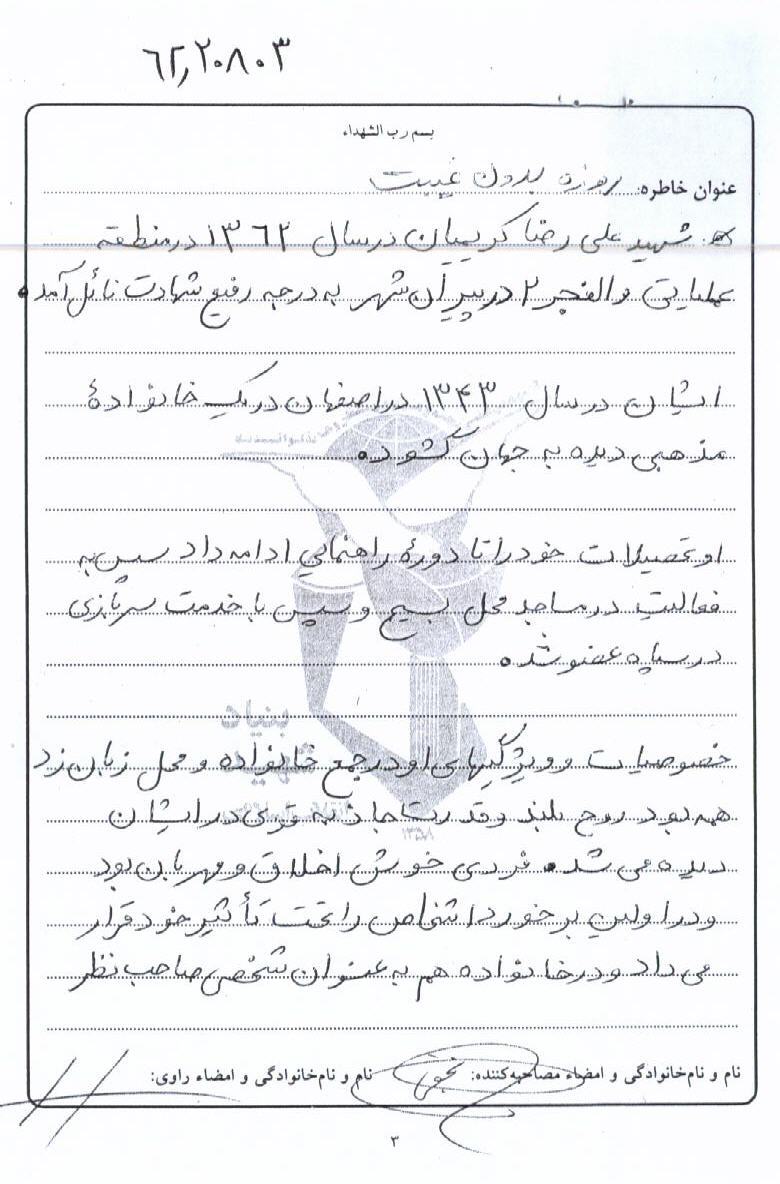 ۶۲٫۲۰۸۰۳
بسم رب الشهداء
عنوان خاطره: روزه بدون غیبت
شهید علی رضا کریمیان در سال ۱۳۶۲ در منطقه
عملیاتی والفجر ۲ در پیرآن شهر به درجه رفیع شهادت نائل آمد.
ایشان در سال ۱۳۴۳ در اصفهان در یک خانوادۀ
مذهبی دیده به جهان گشود.
او تحصیلات خود را تا دورۀ راهنمایی ادامه داد سپس به
فعالیت در مساجد محل بسیج و سپس با خدمت سربازی
در سپاه عضو شد.
خصوصیات و ویژگیهای او در جمع خانواده و محل زبان زد
همه بود روح بلند و قدرت جاذبه قوی در ایشان
دیده می شد. فردی خوش اخلاق و مهربان بود
و در اولین برخورد اشخاص را تحت تأثیر خود قرار
می داد و در خانواده هم به عنوان شخص صاحب نظر
نام و نام خانوادگی و امضاء مصاحبه کننده: نام و نام خانوادگی و امضاء راوی:
۳
بنیاد
۱۳۵۸